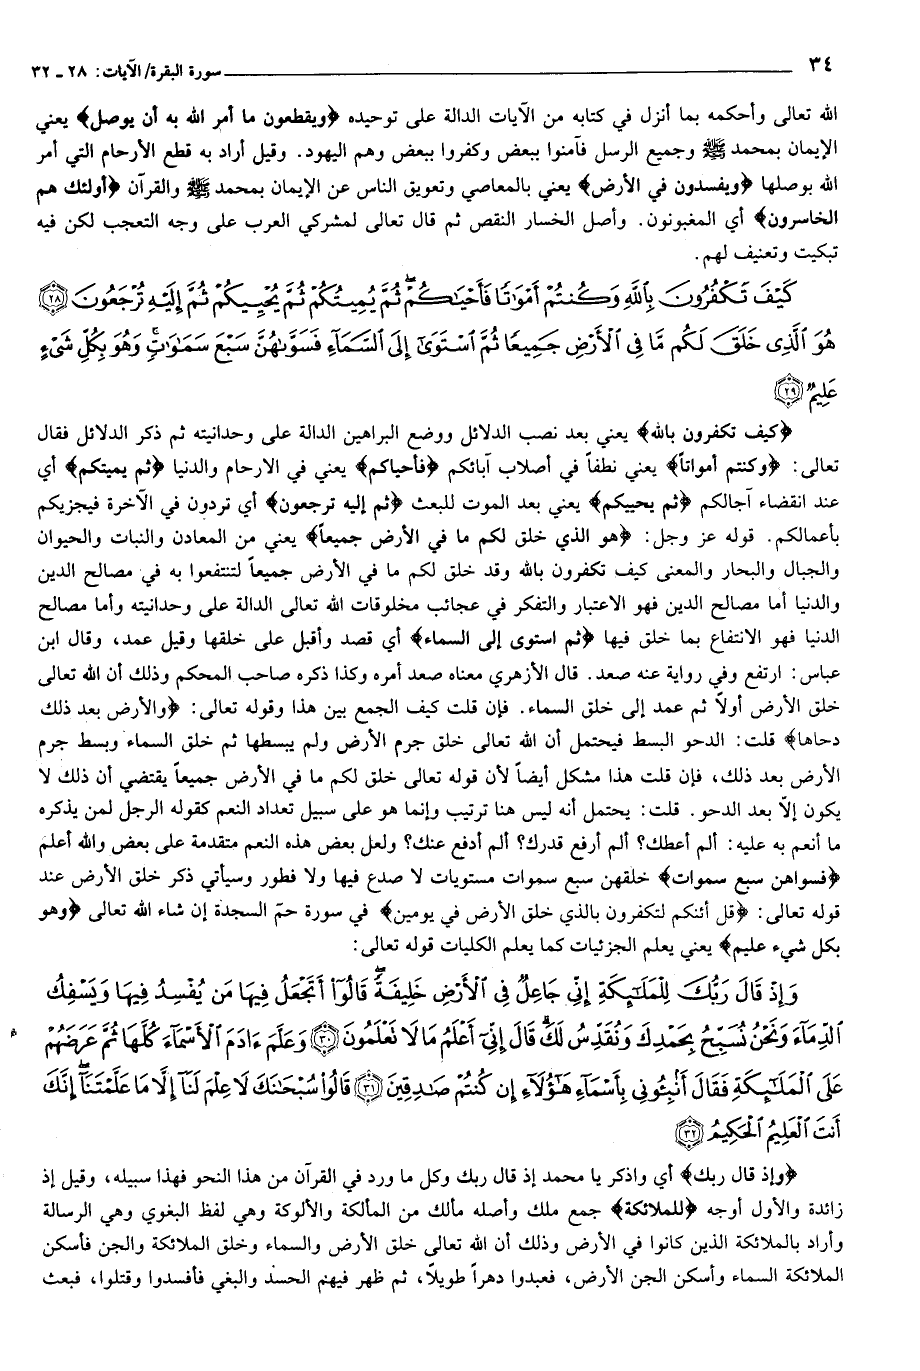 ٣٤ سورة البقرة/ الآيات: ٢٨ ـ ٣٢
الله تعالى وأحكمه بما أنزل في كتابه من الآيات الدالة على توحيده ﴿ويقطعون ما أمر الله به أن يوصل﴾ يعني
الإيمان بمحمد ﷺ وجميع الرسل فآمنوا ببعض وكفروا ببعض وهم اليهود. وقيل أراد به قطع الأرحام التي أمر
الله بوصلها ﴿ويفسدون في الأرض﴾ يعني بالمعاصي وتعويق الناس عن الإيمان بمحمد ﷺ والقرآن ﴿أولئك هم
الخاسرون﴾ أي المغبونون. وأصل الخسار النقص ثم قال تعالى لمشركي العرب على وجه التعجب لكن فيه
تبكيت وتعنيف لهم.
كَيْفَ تَكْفُرُونَ بِاللَّهِ وَكُنتُمْ أَمْوَٰتًا فَأَحْيَٰكُمْ ثُمَّ يُمِيتُكُمْ ثُمَّ يُحْيِيكُمْ ثُمَّ إِلَيْهِ تُرْجَعُونَ ﴿٢٨﴾
هُوَ الَّذِى خَلَقَ لَكُم مَّا فِى الْأَرْضِ جَمِيعًا ثُمَّ اسْتَوَىٰٓ إِلَى السَّمَآءِ فَسَوَّىٰهُنَّ سَبْعَ سَمَٰوَٰتٍ وَهُوَ بِكُلِّ شَىْءٍ
عَلِيمٌ ﴿٢٩﴾
﴿كيف تكفرون بالله﴾ يعني بعد نصب الدلائل ووضع البراهين الدالة على وحدانيته ثم ذكر الدلائل فقال
تعالى: ﴿وكنتم أمواتاً﴾ يعني نطفاً في أصلاب آبائكم ﴿فأحياكم﴾ يعني في الارحام والدنيا ﴿ثم يميتكم﴾ أي
عند انقضاء آجالكم ﴿ثم يحييكم﴾ يعني بعد الموت للبعث ﴿ثم إليه ترجعون﴾ أي تردون في الآخرة فيجزيكم
بأعمالكم. قوله عز وجل: ﴿هو الذي خلق لكم ما في الأرض جميعاً﴾ يعني من المعادن والنبات والحيوان
والجبال والبحار والمعنى كيف تكفرون بالله وقد خلق لكم ما في الأرض جميعاً لتنتفعوا به في مصالح الدين
والدنيا أما مصالح الدين فهو الاعتبار والتفكر في عجائب مخلوقات الله تعالى الدالة على وحدانيته وأما مصالح
الدنيا فهو الانتفاع بما خلق فيها ﴿ثم استوى إلى السماء﴾ أي قصد وأقبل على خلقها وقيل عمد، وقال ابن
عباس: ارتفع وفي رواية عنه صعد. قال الأزهري معناه صعد أمره وكذا ذكره صاحب المحكم وذلك أن الله تعالى
خلق الأرض أولاً ثم عمد إلى خلق السماء. فإن قلت كيف الجمع بين هذا وقوله تعالى: ﴿والأرض بعد ذلك
دحاها﴾ قلت: الدحو البسط فيحتمل أن الله تعالى خلق جرم الأرض ولم يبسطها ثم خلق السماء وبسط جرم
الأرض بعد ذلك، فإن قلت هذا مشكل أيضاً لأن قوله تعالى خلق لكم ما في الأرض جميعاً يقتضي أن ذلك لا
يكون إلاّ بعد الدحو. قلت: يحتمل أنه ليس هنا ترتيب وإنما هو على سبيل تعداد النعم كقوله الرجل لمن يذكره
ما أنعم به عليه: ألم أعطك؟ ألم أرفع قدرك؟ ألم أدفع عنك؟ ولعل بعض هذه النعم متقدمة على بعض والله أعلم
﴿فسواهن سبع سموات﴾ خلقهن سبع سموات مستويات لا صدع فيها ولا فطور وسيأتي ذكر خلق الأرض عند
قوله تعالى: ﴿قل أئنكم لتكفرون بالذي خلق الأرض في يومين﴾ في سورة حمّ السجدة إن شاء الله تعالى ﴿وهو
بكل شيء عليم﴾ يعني يعلم الجزئيات كما يعلم الكليات قوله تعالى:
وَإِذْ قَالَ رَبُّكَ لِلْمَلَٰٓئِكَةِ إِنِّى جَاعِلٌ فِى الْأَرْضِ خَلِيفَةً قَالُوٓا۟ أَتَجْعَلُ فِيهَا مَن يُفْسِدُ فِيهَا وَيَسْفِكُ
الدِّمَآءَ وَنَحْنُ نُسَبِّحُ بِحَمْدِكَ وَنُقَدِّسُ لَكَ قَالَ إِنِّىٓ أَعْلَمُ مَا لَا تَعْلَمُونَ ﴿٣٠﴾ وَعَلَّمَ ءَادَمَ الْأَسْمَآءَ كُلَّهَا ثُمَّ عَرَضَهُمْ
عَلَى الْمَلَٰٓئِكَةِ فَقَالَ أَنۢبِـُٔونِى بِأَسْمَآءِ هَٰٓؤُلَآءِ إِن كُنتُمْ صَٰدِقِينَ ﴿٣١﴾ قَالُوا۟ سُبْحَٰنَكَ لَا عِلْمَ لَنَآ إِلَّا مَا عَلَّمْتَنَآ إِنَّكَ
أَنتَ الْعَلِيمُ الْحَكِيمُ ﴿٣٢﴾
﴿وإذ قال ربك﴾ أي واذكر يا محمد إذ قال ربك وكل ما ورد في القرآن من هذا النحو فهذا سبيله، وقيل إذ
زائدة والأول أوجه ﴿للملائكة﴾ جمع ملك وأصله مألك من المألكة والألوكة وهي لفظ البغوي وهي الرسالة
وأراد بالملائكة الذين كانوا في الأرض وذلك أن الله تعالى خلق الأرض والسماء وخلق الملائكة والجن فأسكن
الملائكة السماء وأسكن الجن الأرض، فعبدوا دهراً طويلاً، ثم ظهر فيهم الحسد والبغي فأفسدوا وقتلوا، فبعث